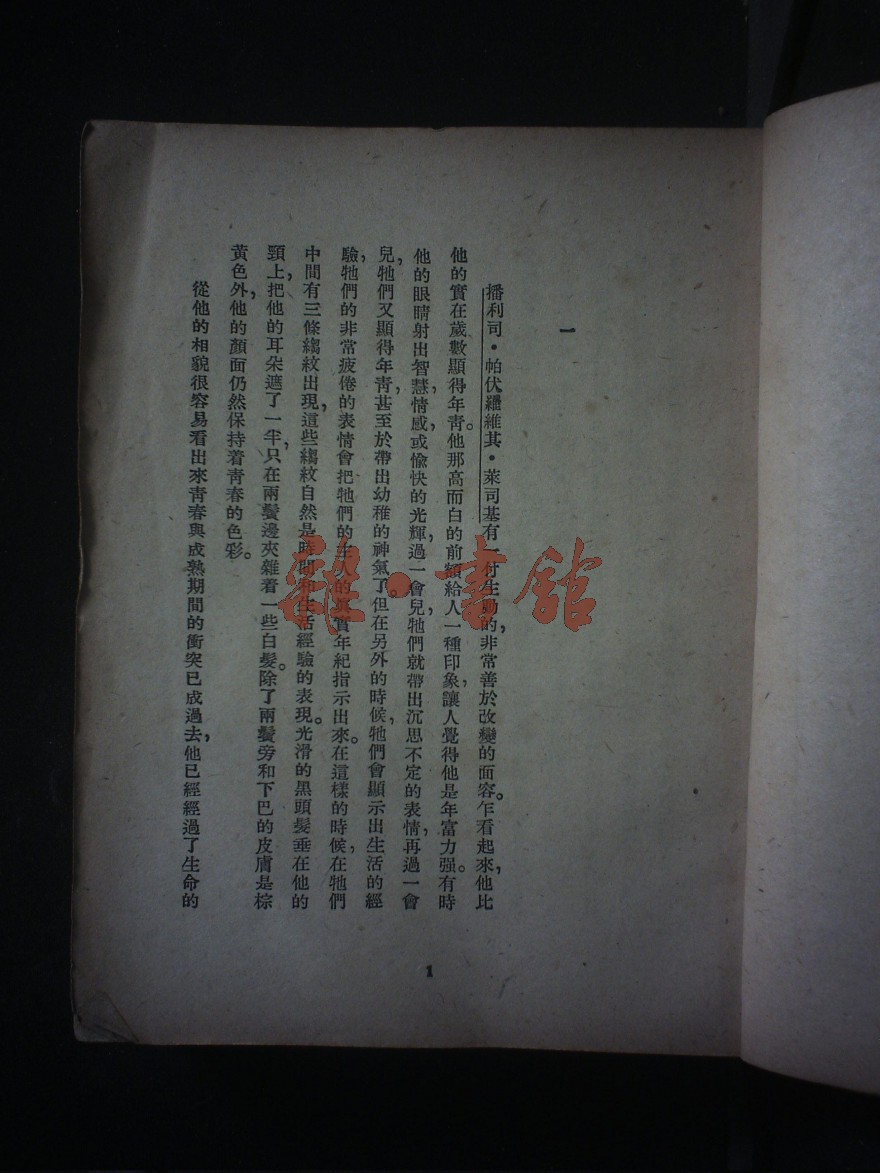 一
播利司·帕伏纖維其·萊司基有一付生動的，非常善於改變的面容。乍看起來，他比
他的實在歲數顯得年青。他那高而白的前額給人一種印象，讓人覺得他是年富力强。有時
他的眼睛射出智慧，情感，或愉快的光輝，過一會兒，牠們就帶出沉思不定的表情，再過一會
兒，牠們又顯得年靑，甚至於帶出幼稚的神氣了。但在另外的時候，牠們會顯示出生活的經
驗，牠們的非常疲倦的表情會把牠們的主人的眞實年紀指示出來。在這樣的時候，在牠們
中間有三條縐紋出現，這些縐紋自然是時間和生活經驗的表現。光滑的黑頭髮垂在他的
頸上，把他的耳朵遮了一半，只在兩鬢邊夾雜着一些白髮。除了兩鬢旁和下巴的皮膚是棕
黃色外，他的顏面仍然保持着靑春的色彩。
從他的相貌很容易看出來靑春與成熟期間的衝突已成過去，他已經經過了生命的
1
雜·書館